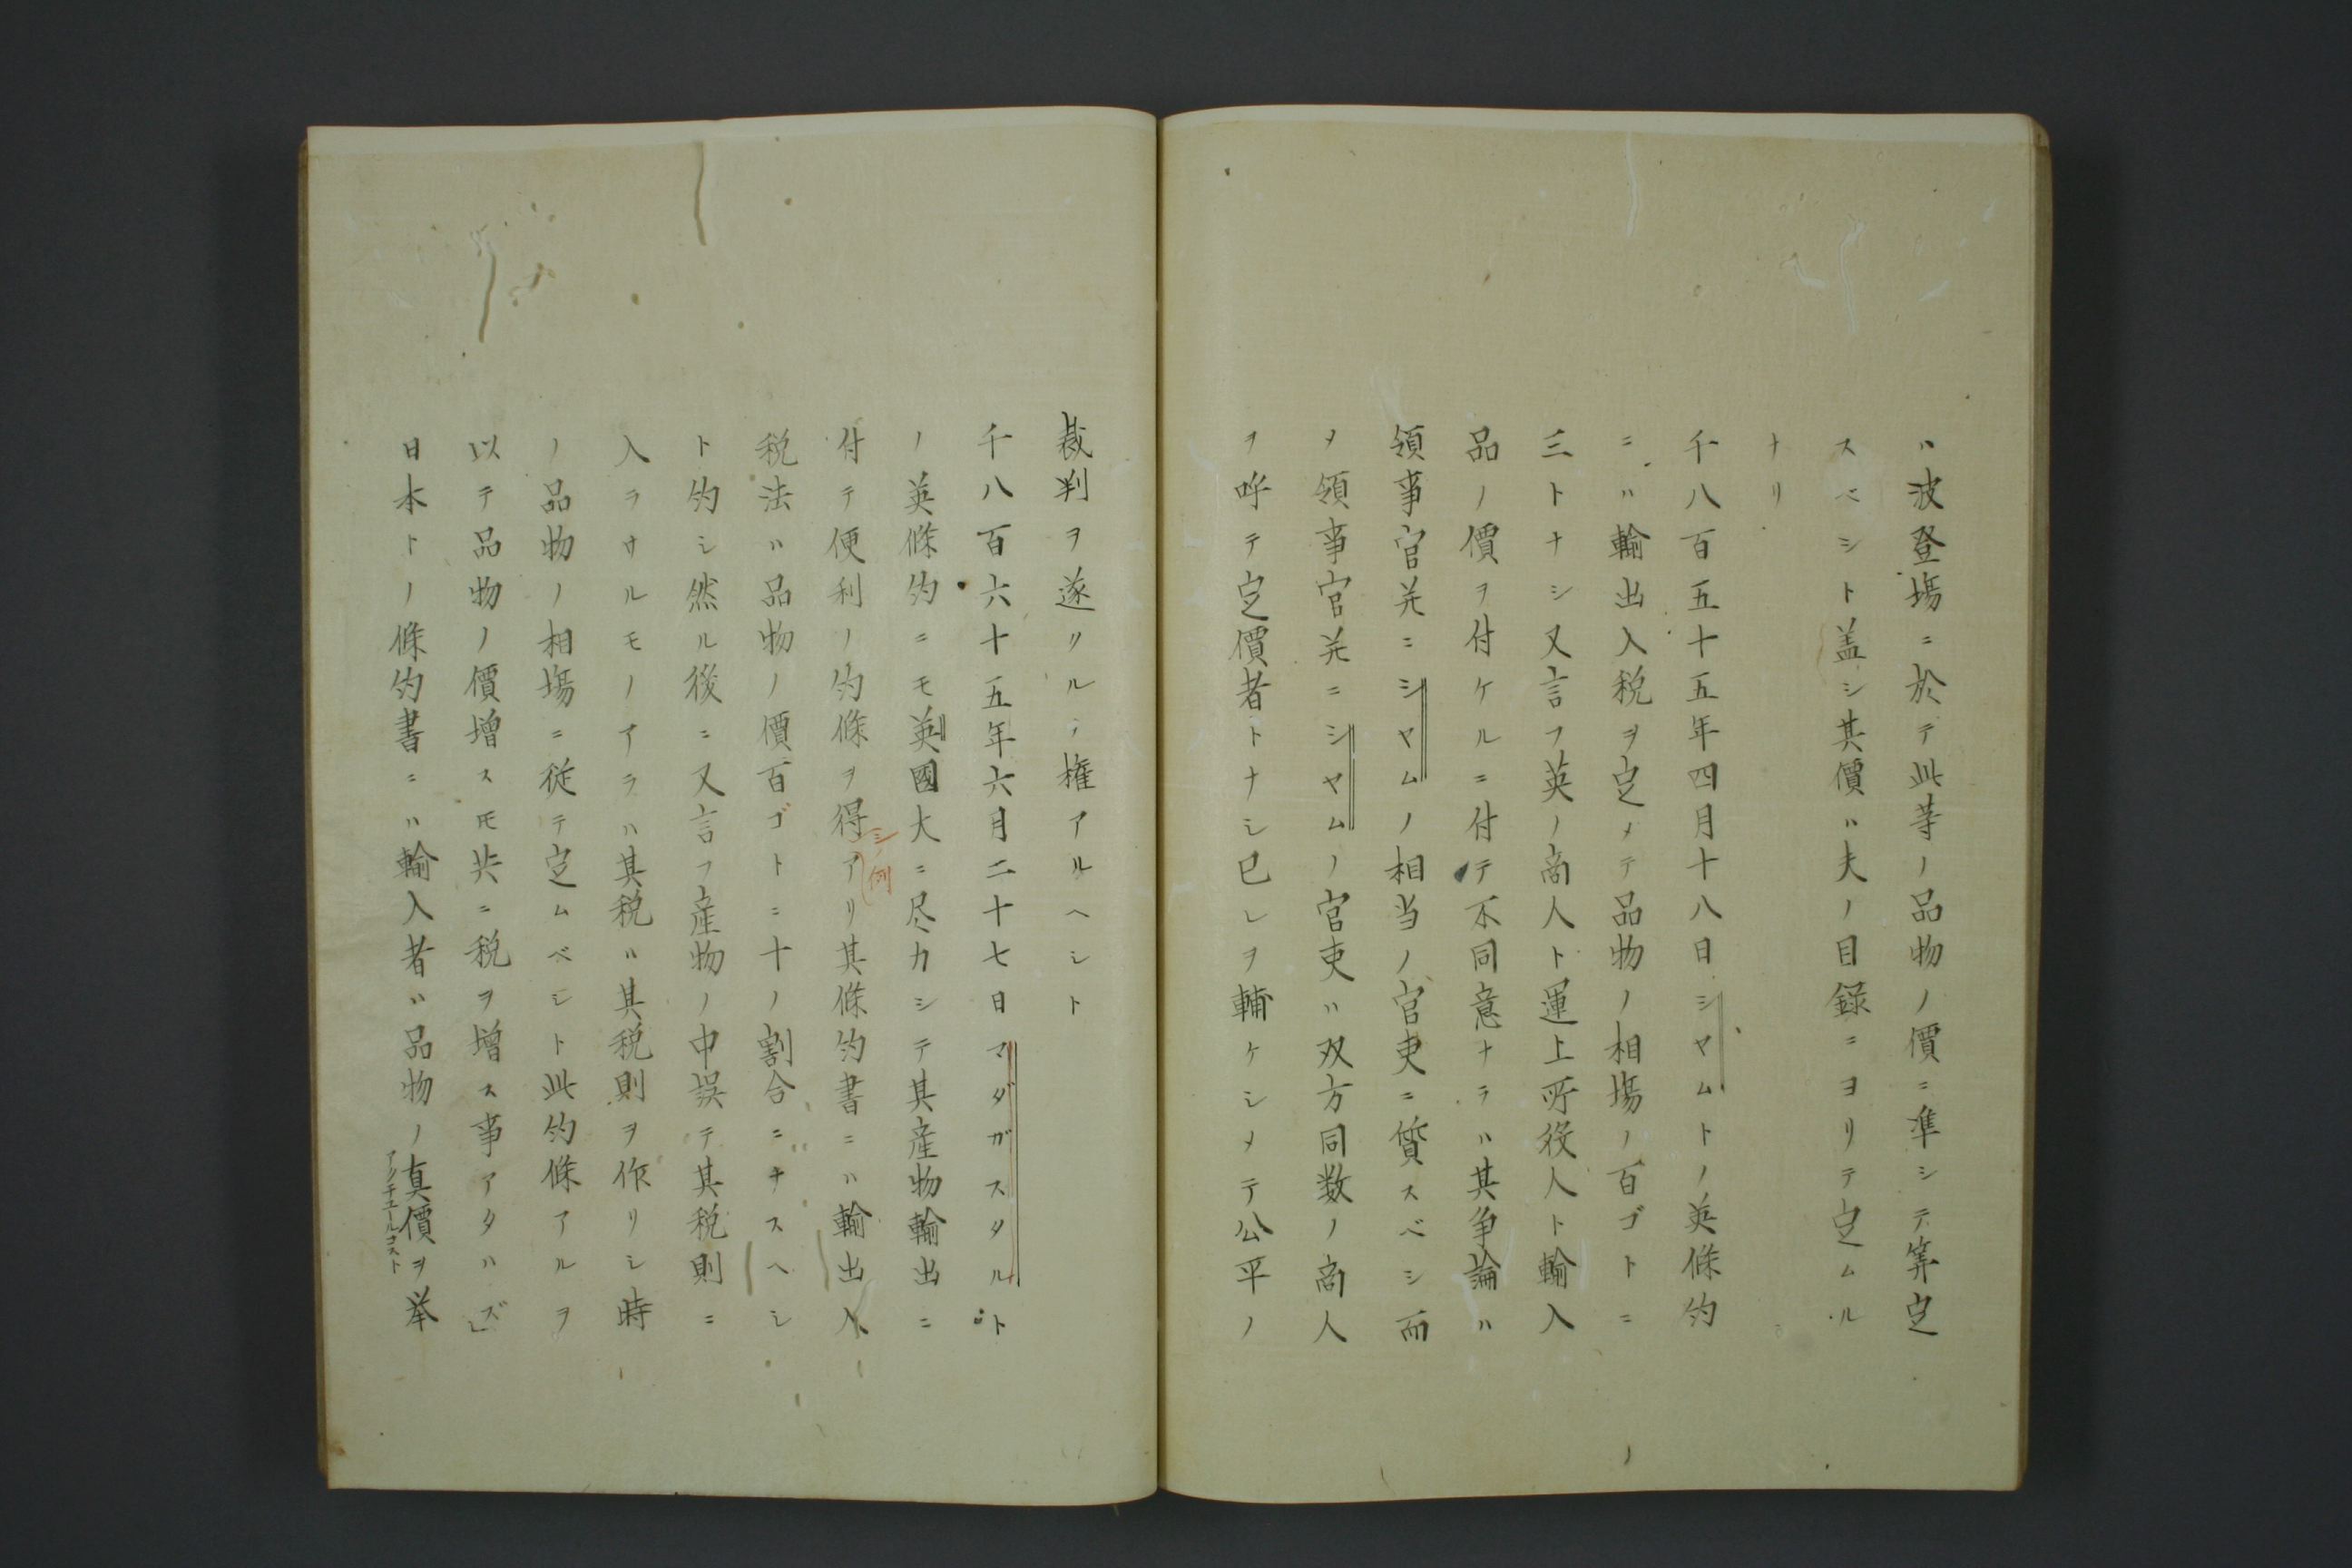 ハ波登場ニ於テ此等ノ品物ノ價ニ準シテ算定
スベシト盖シ其價ハ夫ノ目録ニヨリテ定ムル
ナリ
千八百五十五年四月十八日シヤムトノ英條約
ニハ輸出入税ヲ定メテ品物ノ相場ノ百ゴトニ
三トナシ又言フ英ノ商人ト運上所役人ト輸入
品ノ價ヲ付ケルニ付テ不同意ナラハ其争論ハ
領事官并ニシヤムノ相当ノ官吏ニ質スベシ而
メ領事官并ニシヤムノ官吏ハ双方同数ノ商人
ヲ呼テ定價者トナシ已レヲ輔ケシメテ公平ノ
裁判ヲ遂リルヿ権アルヘシト
千八百六十五年六月二十七日マダガスタルト
ノ英條約ニモ英國大ニ尽力シテ其産物輸出ニ
付テ便利ノ約條ヲ得アリ其條約書ニハ輸出入
シ例
税法ハ品物ノ價百ゴトニ十ノ割合ニナスヘシ
ト約シ然ル後ニ又言フ産物ノ中誤テ其税則ニ
入ラサルモノアラハ其税ハ其税則ヲ作リシ時
ノ品物ノ相場ニ従テ定ムベシト此約條アルヲ
以テ品物ノ價増スモ共ニ税ヲ増ス事アタハズ」
日本トノ條約書ニハ輸入者ハ品物ノ真價ヲ举
アクチユールコスト